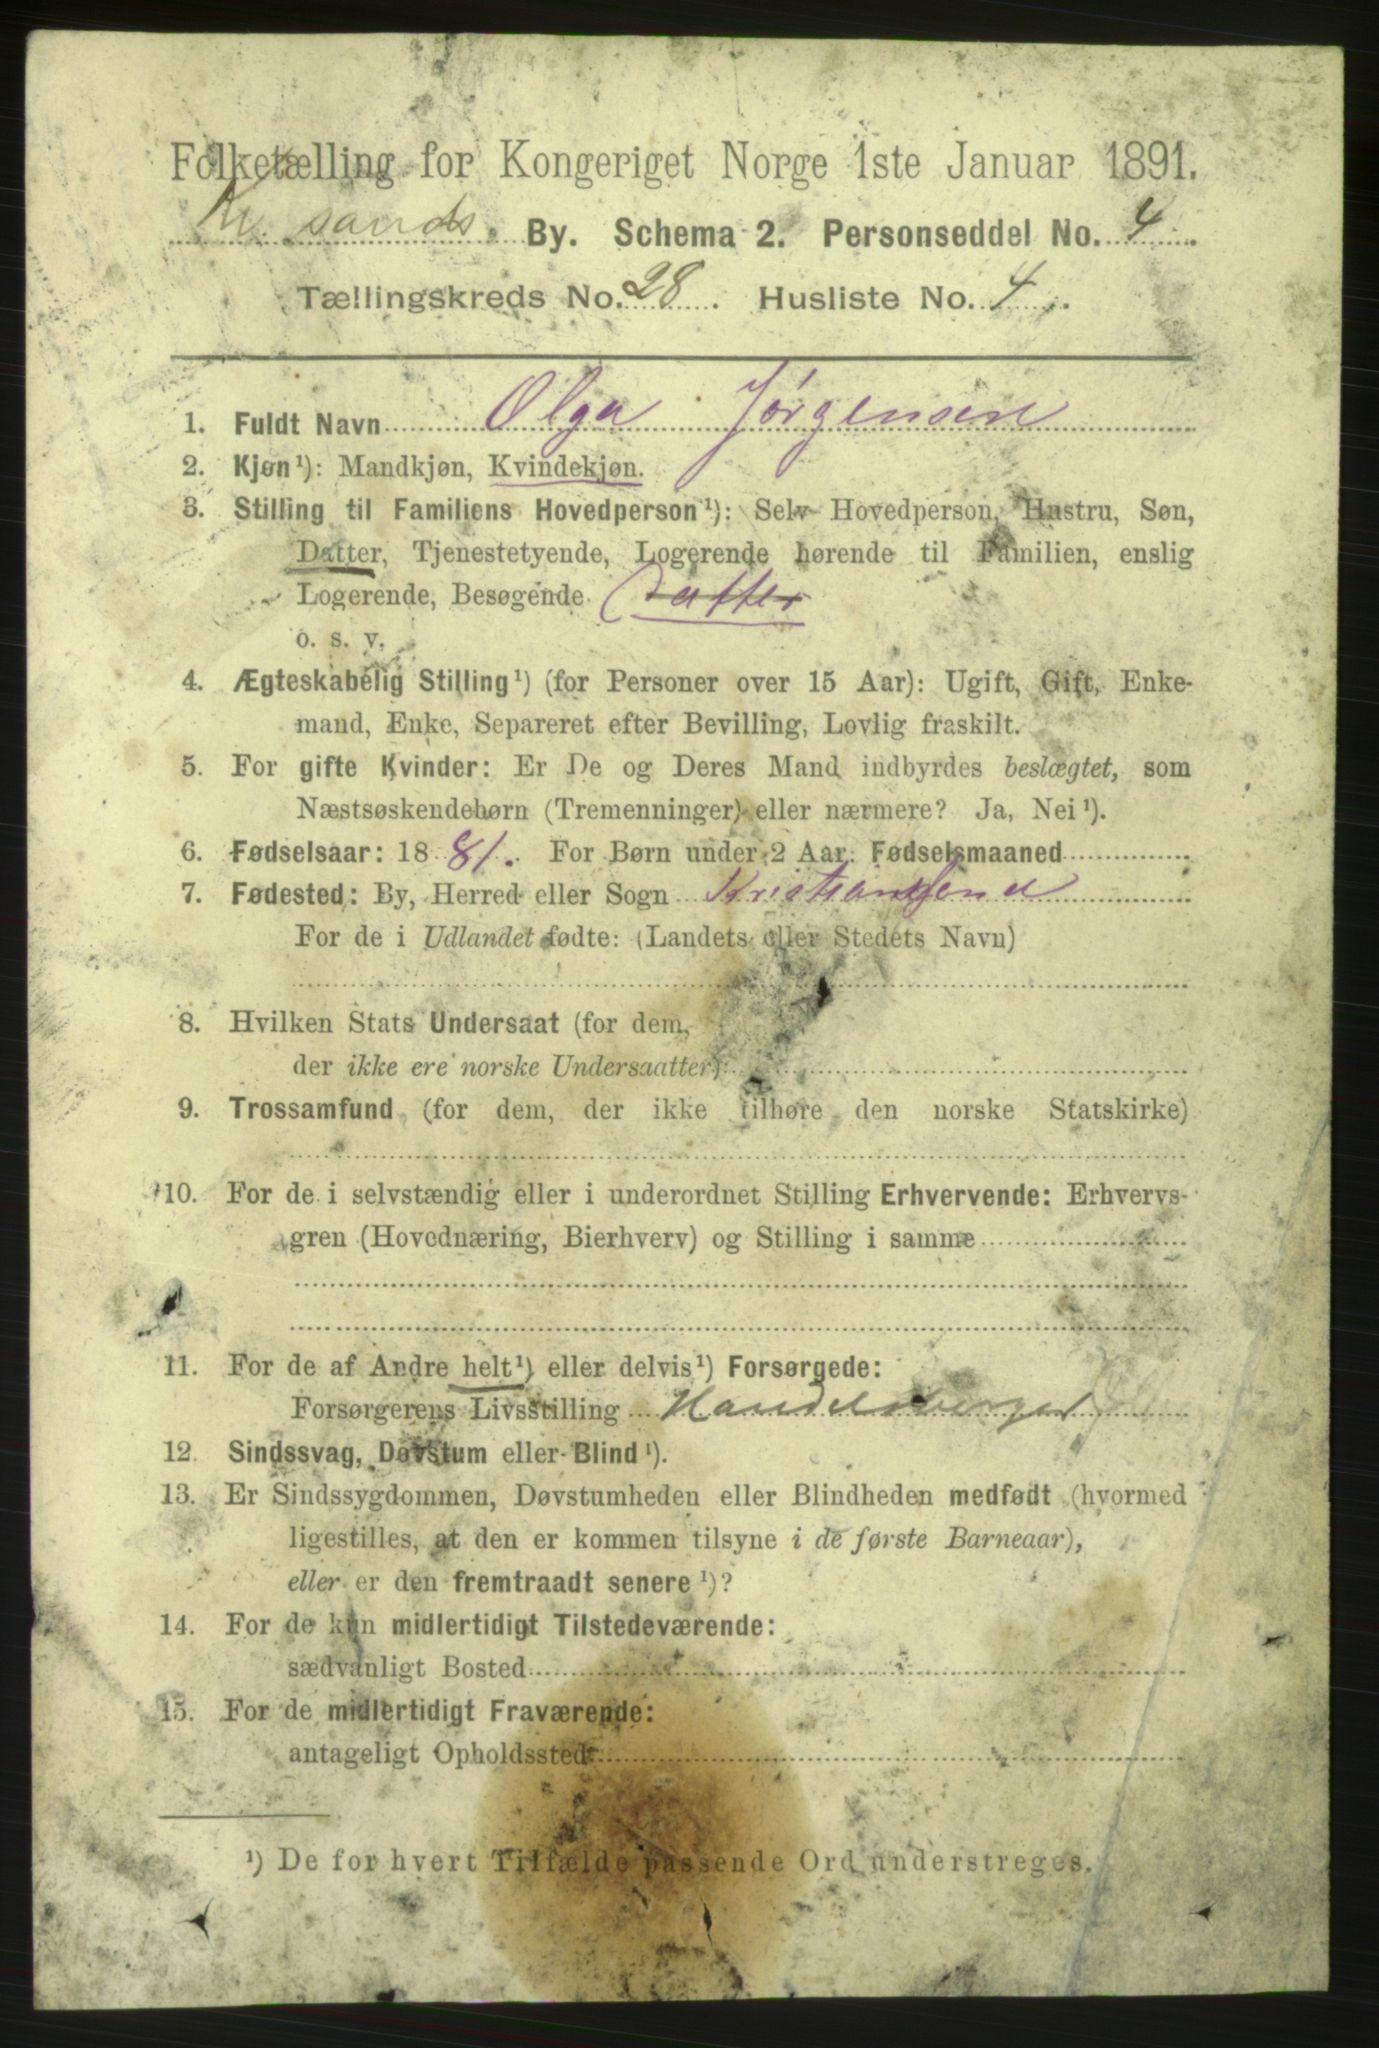 Folketælling for Kongeriget Norge 1ste Januar 1891.
Kr. sands By. Schema 2. Personseddel No. 4.
Tællingskreds No. 28. Husliste No. 4.
1. Fuldt Navn Olga Jørgensen
2. Kjøn¹): Mandkjøn, Kvindekjøn.
3. Stilling til Familiens Hovedperson¹): Selv Hovedperson, Hustru, Søn,
Datter, Tjenestetyende, Logerende hørende til Familien, enslig
Logerende, Besøgende Datter
o. s. v.
4. Ægteskabelig Stilling¹) (for Personer over 15 Aar): Ugift, Gift, Enke-
mand, Enke, Separeret efter Bevilling, Lovlig fraskilt.
5. For gifte Kvinder: Er De og Deres Mand indbyrdes beslægtet, som
Næstsøskendebørn (Tremenninger) eller nærmere? Ja, Nei¹).
6. Fødselsaar: 1881. For Børn under 2 Aar: Fødselsmaaned
7. Fødested: By, Herred eller Sogn Kristiansand
For de i Udlandet fødte: (Landets eller Stedets Navn)
8. Hvilken Stats Undersaat (for dem,
der ikke ere norske Undersaatter)
9. Trossamfund (for dem, der ikke tilhøre den norske Statskirke)
10. For de i selvstændig eller i underordnet Stilling Erhvervende: Erhvervs-
gren (Hovednæring, Bierhverv) og Stilling i samme
11. For de af Andre helt¹) eller delvis¹) Forsørgede:
Forsørgerens Livsstilling Handelsborger
12. Sindssvag, Døvstum eller Blind¹).
13. Er Sindssygdommen, Døvstumheden eller Blindheden medfødt (hvormed
ligestilles, at den er kommen tilsyne i de første Barneaar),
eller er den fremtraadt senere¹)?
14. For de kun midlertidigt Tilstedeværende:
sædvanligt Bosted
15. For de midlertidigt Fraværende:
antageligt Opholdssted
¹) De for hvert Tilfælde passende Ord understreges.